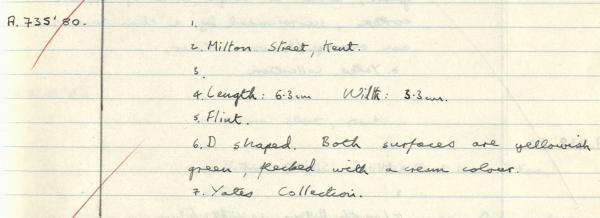 A. 735'80. 1.
2. Milton Street, Kent.
3.
4. Length: 6.3cm Width: 3.3cm.
5. Flint.
6. D shaped. Both surfaces are yellowish
green, flecked with a cream colour.
7. Yates Collection.